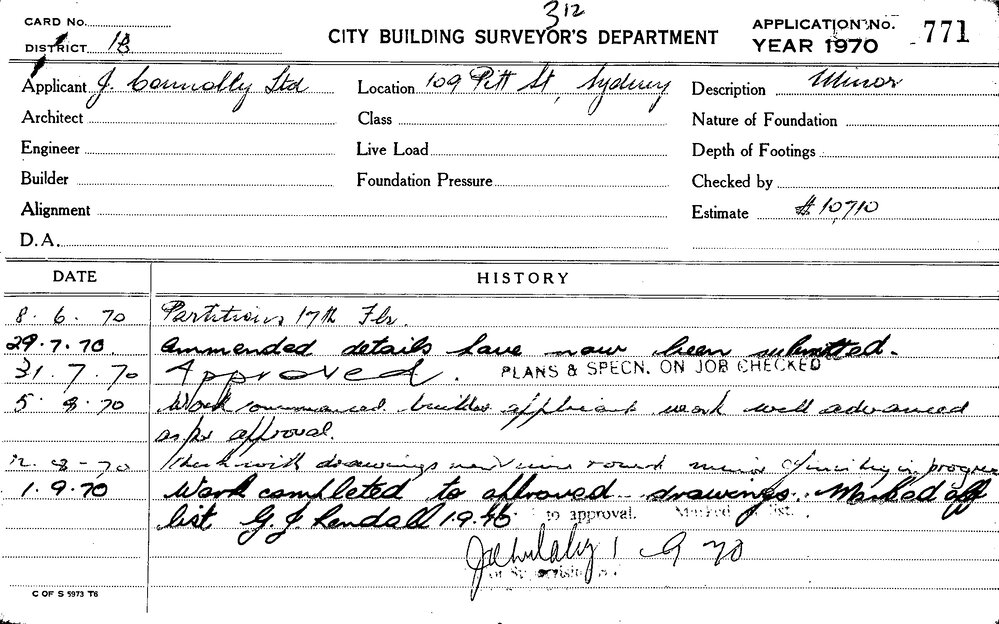 312
CARD No.
DISTRICT 18
CITY BUILDING SURVEYOR'S DEPARTMENT
APPLICATION No. 771
YEAR 1970
Applicant J. Connolly Ltd
Location 109 Pitt St, Sydney
Description Minor
Architect
Class
Nature of Foundation
Engineer
Live Load
Depth of Footings
Builder
Foundation Pressure
Checked by
Alignment
Estimate $10,710
D.A.
DATE HISTORY
8. 6. 70 Partitions 17th Flr.
29.7.70. Ammended details have now been submitted.
31.7.70 Approved. PLANS & SPECN. ON JOB CHECKED
5.8.70 Work commenced builder applicant work well advanced
as per approval.
12. 8-70 with drawings in progress
1.9.70 Work completed to approved drawings. Marked off
list G. J. Kendall to approval. Marked list.
1 9 70
C OF S 5973 T6